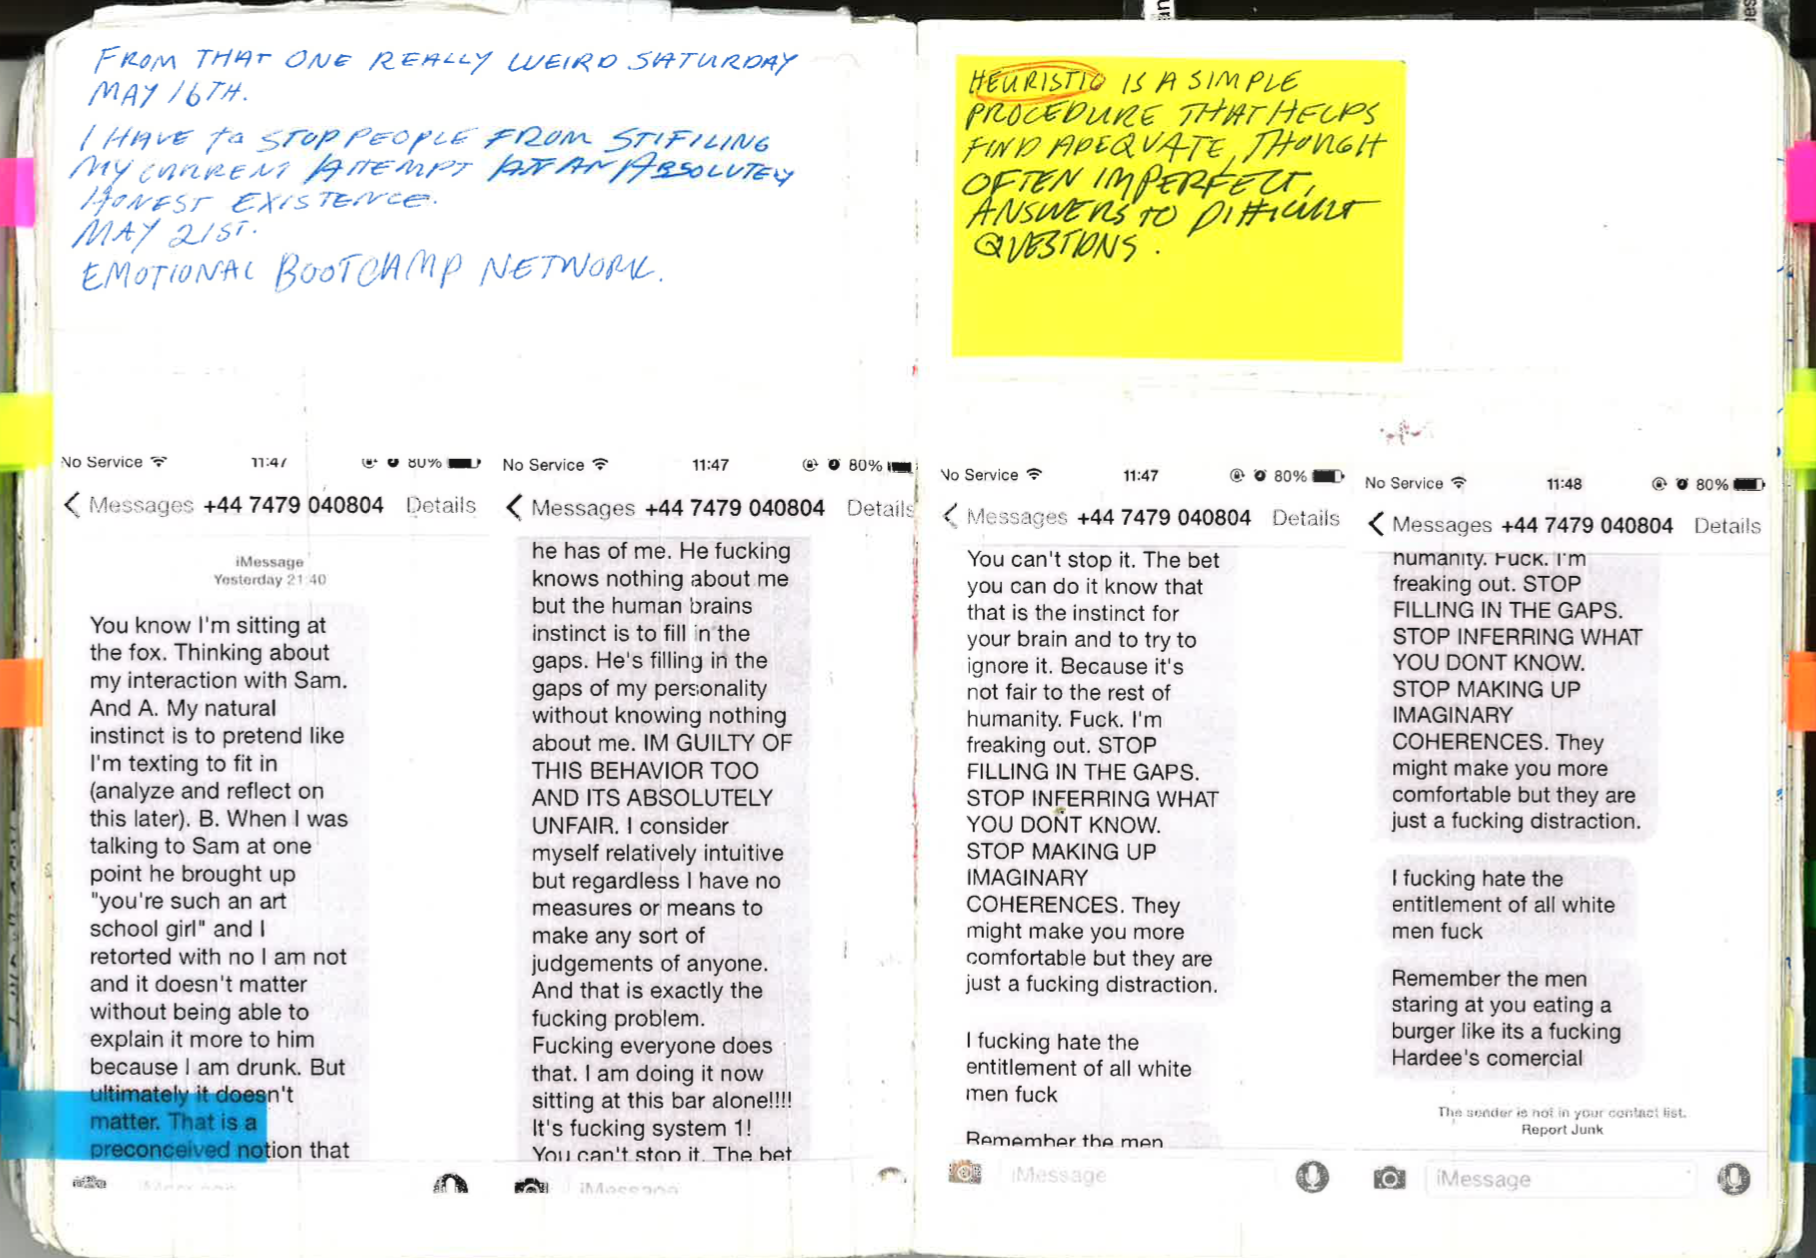 FROM THAT ONE REALLY WEIRD SATURDAY
MAY 16TH.
I HAVE to STOP PEOPLE FROM STIFILING
MY CURRENT ATTEMPT AT AN ABSOLUTELY
HONEST EXISTENCE.
MAY 21ST.
EMOTIONAL BOOTCAMP NETWORK.
No Service 11:47 80%
Messages +44 7479 040804 Details
iMessage
Yesterday 21:40
You know I'm sitting at
the fox. Thinking about
my interaction with Sam.
And A. My natural
instinct is to pretend like
I'm texting to fit in
(analyze and reflect on
this later). B. When I was
talking to Sam at one
point he brought up
"you're such an art
school girl" and I
retorted with no I am not
and it doesn't matter
without being able to
explain it more to him
because I am drunk. But
ultimately it doesn't
matter. That is a
preconceived notion that
No Service 11:47 80%
Messages +44 7479 040804 Details
he has of me. He fucking
knows nothing about me
but the human brains
instinct is to fill in the
gaps. He's filling in the
gaps of my personality
without knowing nothing
about me. IM GUILTY OF
THIS BEHAVIOR TOO
AND ITS ABSOLUTELY
UNFAIR. I consider
myself relatively intuitive
but regardless I have no
measures or means to
make any sort of
judgements of anyone.
And that is exactly the
fucking problem.
Fucking everyone does
that. I am doing it now
sitting at this bar alone!!!!
It's fucking system 1!
You can't stop it. The bet
iMessage
HEURISTIC IS A SIMPLE
PROCEDURE THAT HELPS
FIND ADEQUATE, THOUGH
OFTEN IMPERFECT,
ANSWERS TO DIFFICULT
QUESTIONS.
No Service 11:47 80%
Messages +44 7479 040804 Details
You can't stop it. The bet
you can do it know that
that is the instinct for
your brain and to try to
ignore it. Because it's
not fair to the rest of
humanity. Fuck. I'm
freaking out. STOP
FILLING IN THE GAPS.
STOP INFERRING WHAT
YOU DONT KNOW.
STOP MAKING UP
IMAGINARY
COHERENCES. They
might make you more
comfortable but they are
just a fucking distraction.
I fucking hate the
entitlement of all white
men fuck
Remember the men
iMessage
No Service 11:48 80%
Messages +44 7479 040804 Details
humanity. Fuck. I'm
freaking out. STOP
FILLING IN THE GAPS.
STOP INFERRING WHAT
YOU DONT KNOW.
STOP MAKING UP
IMAGINARY
COHERENCES. They
might make you more
comfortable but they are
just a fucking distraction.
I fucking hate the
entitlement of all white
men fuck
Remember the men
staring at you eating a
burger like its a fucking
Hardee's comercial
The sender is not in your contact list.
Report Junk
iMessage